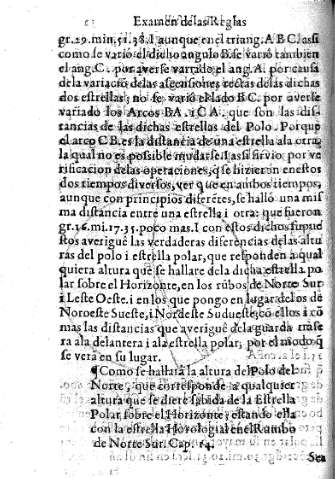 Examen de las Reglas
gr. 29. min. 51. 38. I aunque en el triang. A B C. assi
como se varió el dicho angulo B. se varió tambien
el ang. C. por averse variado el ang. A. por causa
de la variaciō de las ascensiones rectas de las dichas
dos estrellas; no se varió el lado B C. por averse
variado los Arcos B A. i C A. que son las dis-
tancias de las dichas estrellas del Polo. Porque
el arco C B. es la distancia de una estrella ala otra,
la qual no es possible mudarse. I assi sirvió por ve
rificacion de las operaciones, q̄ se hizieron en estos
dos tiempos diversos, ver que en ambos tiempos,
aunque con principios diferētes, se halló una mis
ma distancia entre una estrella i otra: que fueron
gr. 16. mi. 17. 35. poco mas. I con estos dichos supue
stos averiguè las verdaderas diferencias de las altu
ras del polo i estrella polar, que respondē a qual
quiera altura que se hallare de la dicha estrella po
lar sobre el Horizonte, en los rūbos de Norte Sur
i Leste Oeste. i en los que pongo en lugar de los de
Noroeste Sueste, i Nordeste Sudueste; cō ellos i cō
mas las distancias que averiguè de la guarda trase
ra ala delantera i ala estrella polar; por el modo q̄
se verá en su lugar.
¶ Como se hallará la altura del Polo del
Norte, que corresponde a qualquier
altura que se diere sabida de la Estrella
Polar sobre el Horizonte; estando ella
con la estrella Horologial en el Rumbo
de Norte Sur. Cap. 14.
Sea